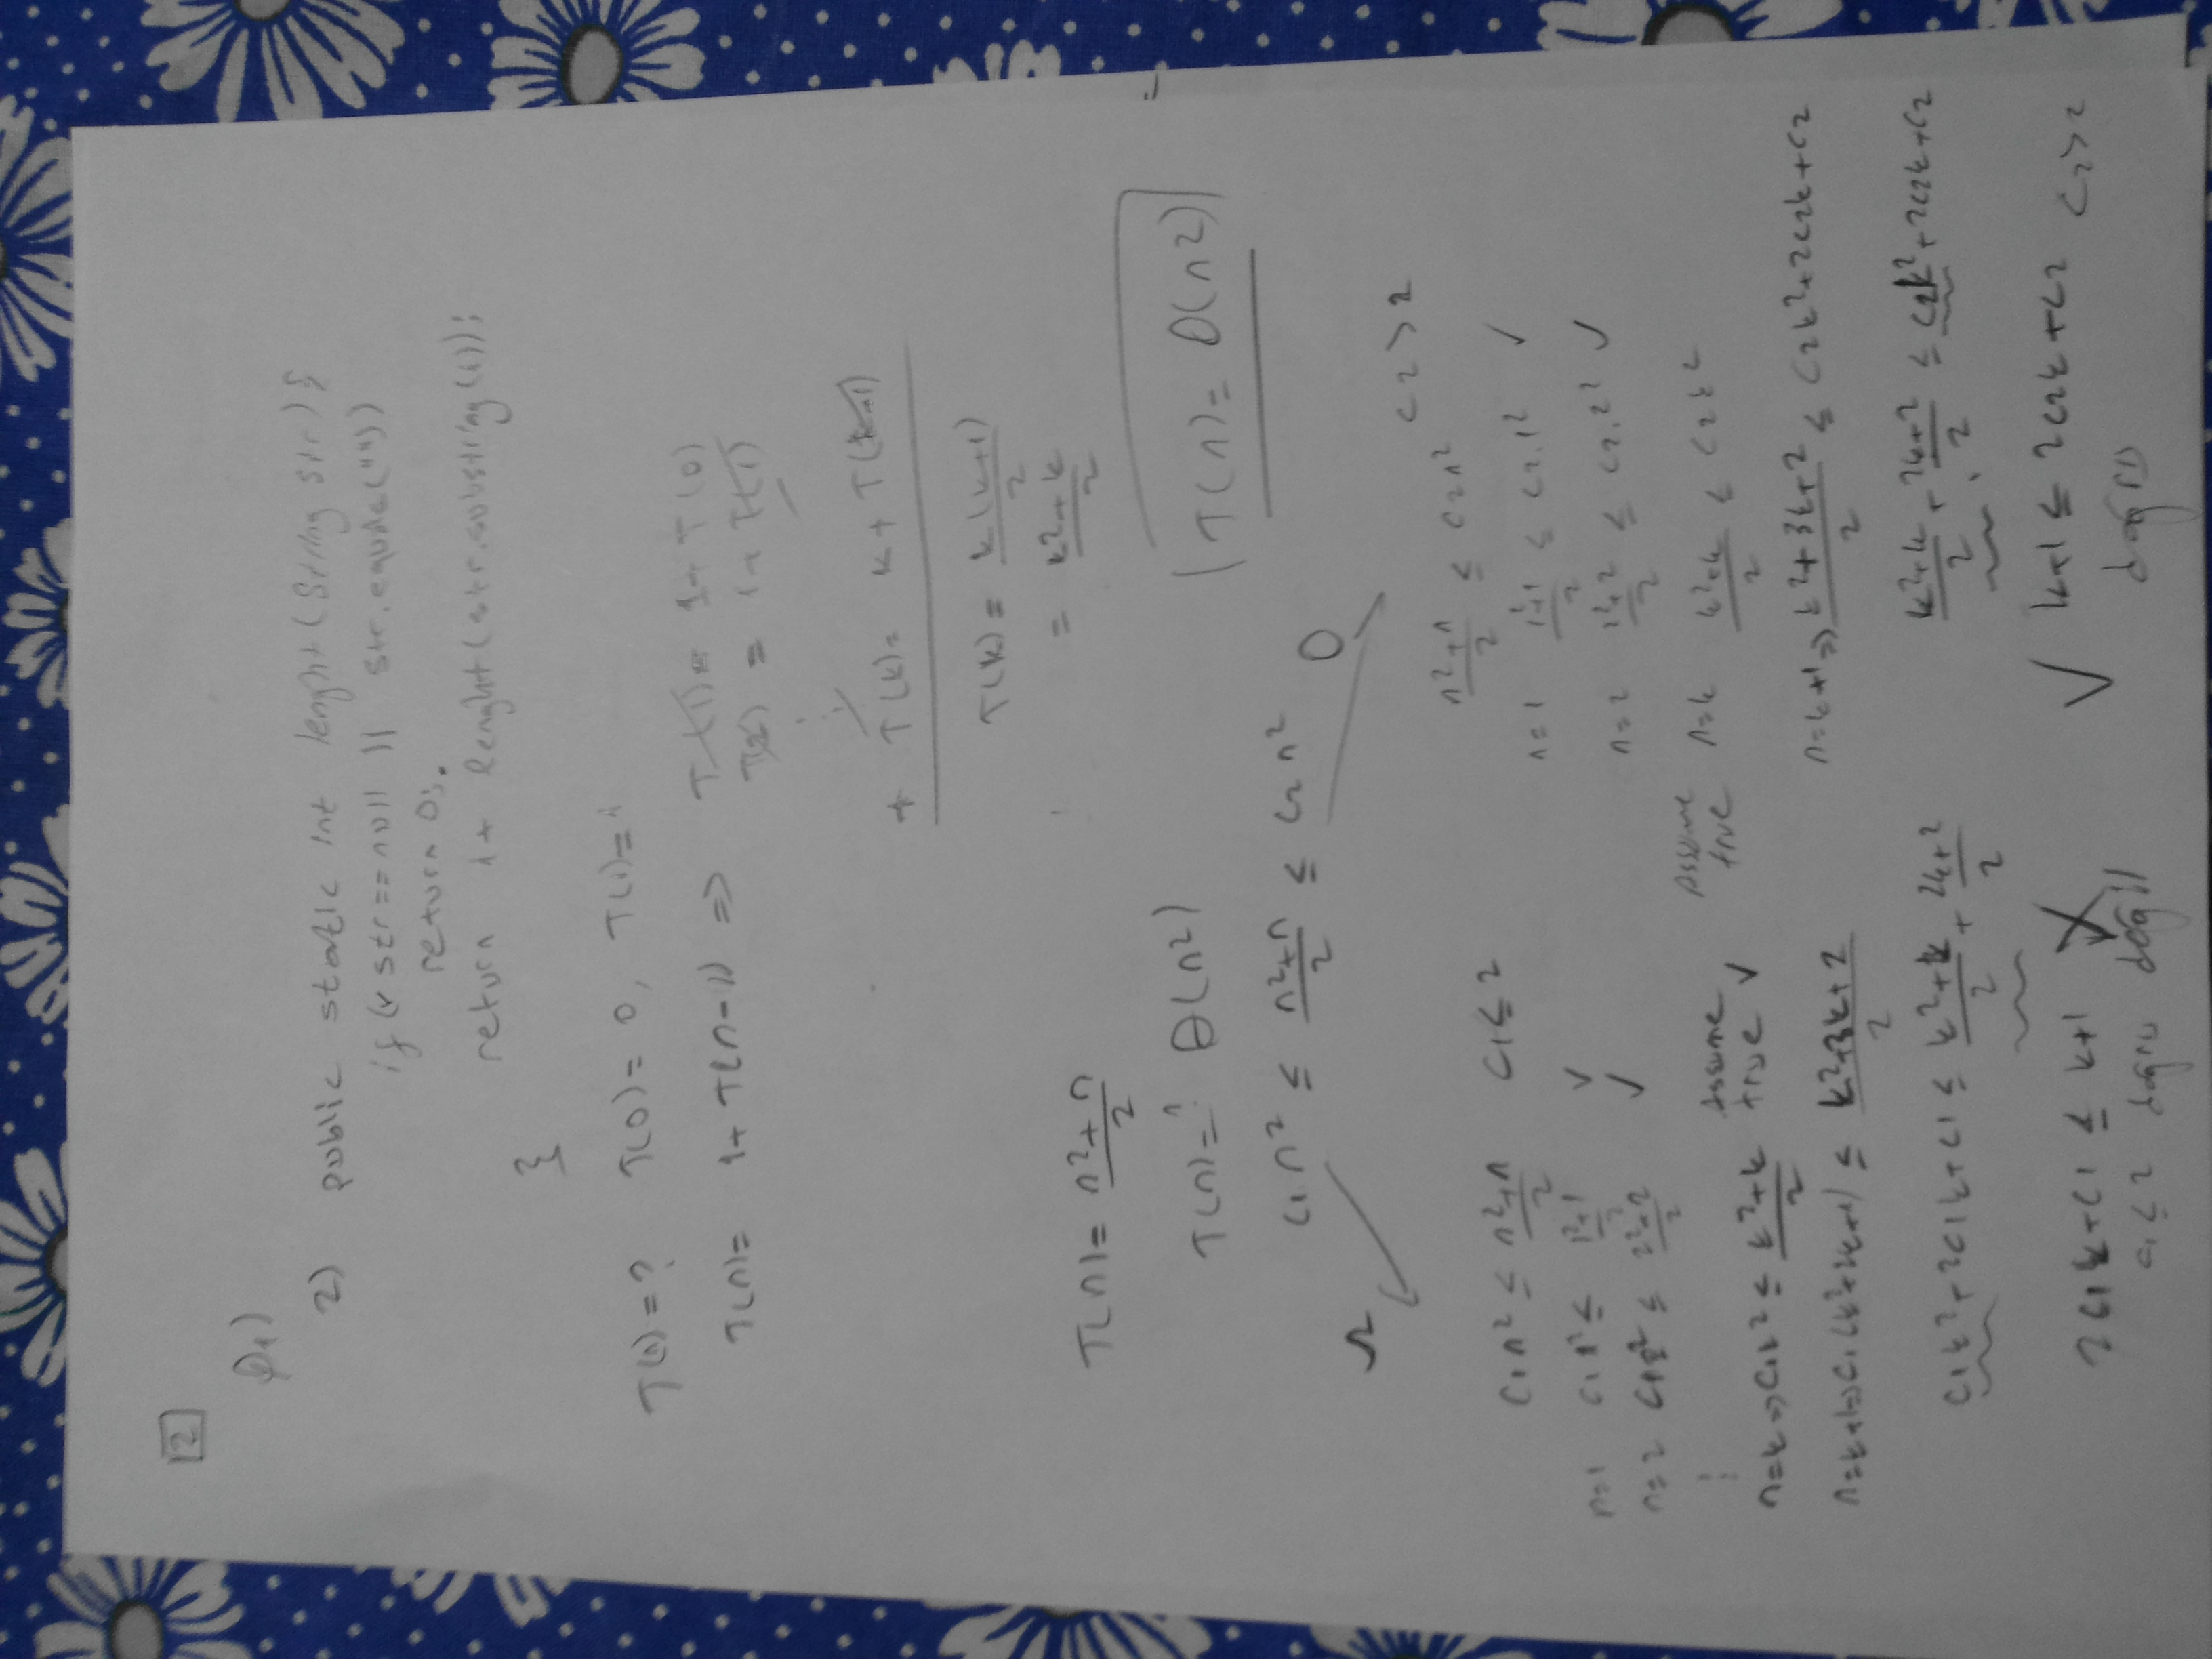 2
Q1)
2) public static int lenght(String str){
if(str==null || str.equals(""))
return 0;
return 1+ lenght(str.substring(1));
}
T(n)=? T(0)=0, T(1)=1
T(n)= 1+T(n-1) => T(1)= 1+T(0)
T(2) = 1+T(1)
+ T(k)= k+T(k-1)
T(k)= k(k+1)/2
= k²+k/2
T(n)= n²+n/2
T(n)=? Θ(n2)
T(n)= O(n2)
c1n² ≤ n²+n/2 ≤ c2n²
Ω
O
c1n² ≤ n²+n/2 c1≤2
n=1 c1 1² ≤ 1²+1/2 ✓
n=2 c1 2² ≤ 2²+2/2 ✓
n=k=>c1k² ≤ k²+k/2 Assume true ✓
n=k+1=>c1(k²+2k+1) ≤ k²+3k+2/2
c1k²+2c1k+c1 ≤ k²+k/2 + 2k+2/2
2c1k+c1 ≤ k+1 X
c1≤2 dogru değil
c2>2
n²+n/2 ≤ c2n²
n=1 1²+1/2 ≤ c2.1² ✓
n=2 2²+2/2 ≤ c2.2² ✓
Assume true n=k k²+k/2 ≤ c2k²
n=k+1=> k²+3k+2/2 ≤ c2k²+2c2k+c2
k²+k/2 + 2k+2/2 ≤ c2k²+2c2k+c2
✓ k+1 ≤ 2c2k+c2 c2>2
doğru